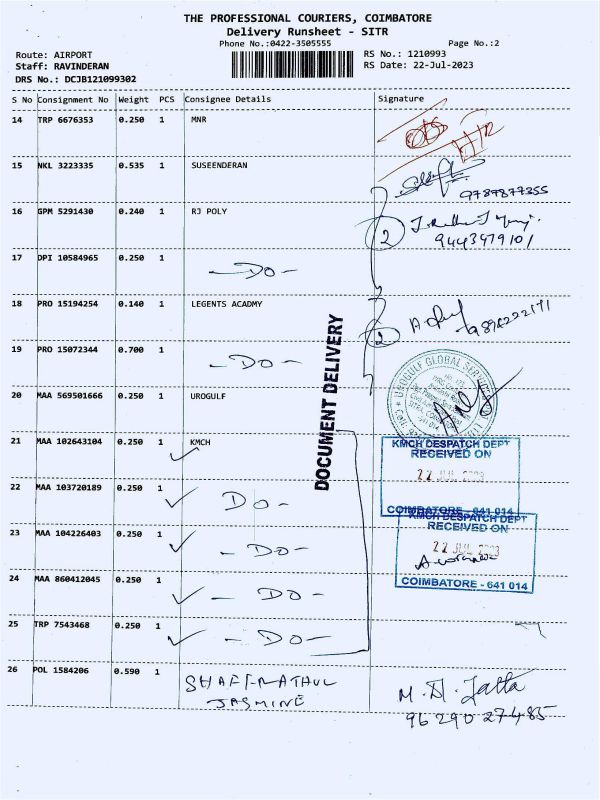 THE PROFESSIONAL COURIERS, COIMBATORE
Delivery Runsheet - SITR
Phone No.:0422-3505555
Page No.:2
Route: AIRPORT
RS No.: 1210993
Staff: RAVINDERAN
RS Date: 22-Jul-2023
DRS No.: DCJB121099302
S No Consignment No Weight PCS Consignee Details Signature
14 TRP 6676353 0.250 1 MNR
15 NKL 3223335 0.535 1 SUSEENDERAN
9787877355
16 GPM 5291430 0.240 1 RJ POLY
2
9443479101
17 DPI 10584965 0.250 1 -DO-
18 PRO 15194254 0.140 1 LEGENTS ACADMY
2
19 PRO 15072344 0.700 1 -DO-
DOCUMENT DELIVERY
20 MAA 569501666 0.250 1 UROGULF
UROGULF GLOBAL SERVICES
21 MAA 102643104 0.250 1 KMCH
KMCH DESPATCH DEPT
RECEIVED ON
22 JUL
COIMBATORE - 641 014
22 MAA 103720189 0.250 1 DO-
KMCH DESPATCH DEPT
RECEIVED ON
23 MAA 104226403 0.250 1 -DO-
22 JUL
COIMBATORE - 641 014
24 MAA 860412045 0.250 1 -DO-
25 TRP 7543468 0.250 1 -DO-
26 POL 1584206 0.590 1 SHAFFRATHUL
JASMINE
9629027485